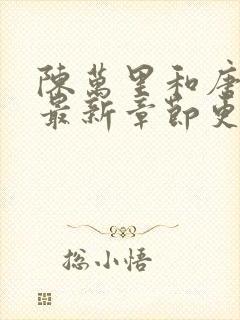 陳萬里和唐
最新章節更
総小悟